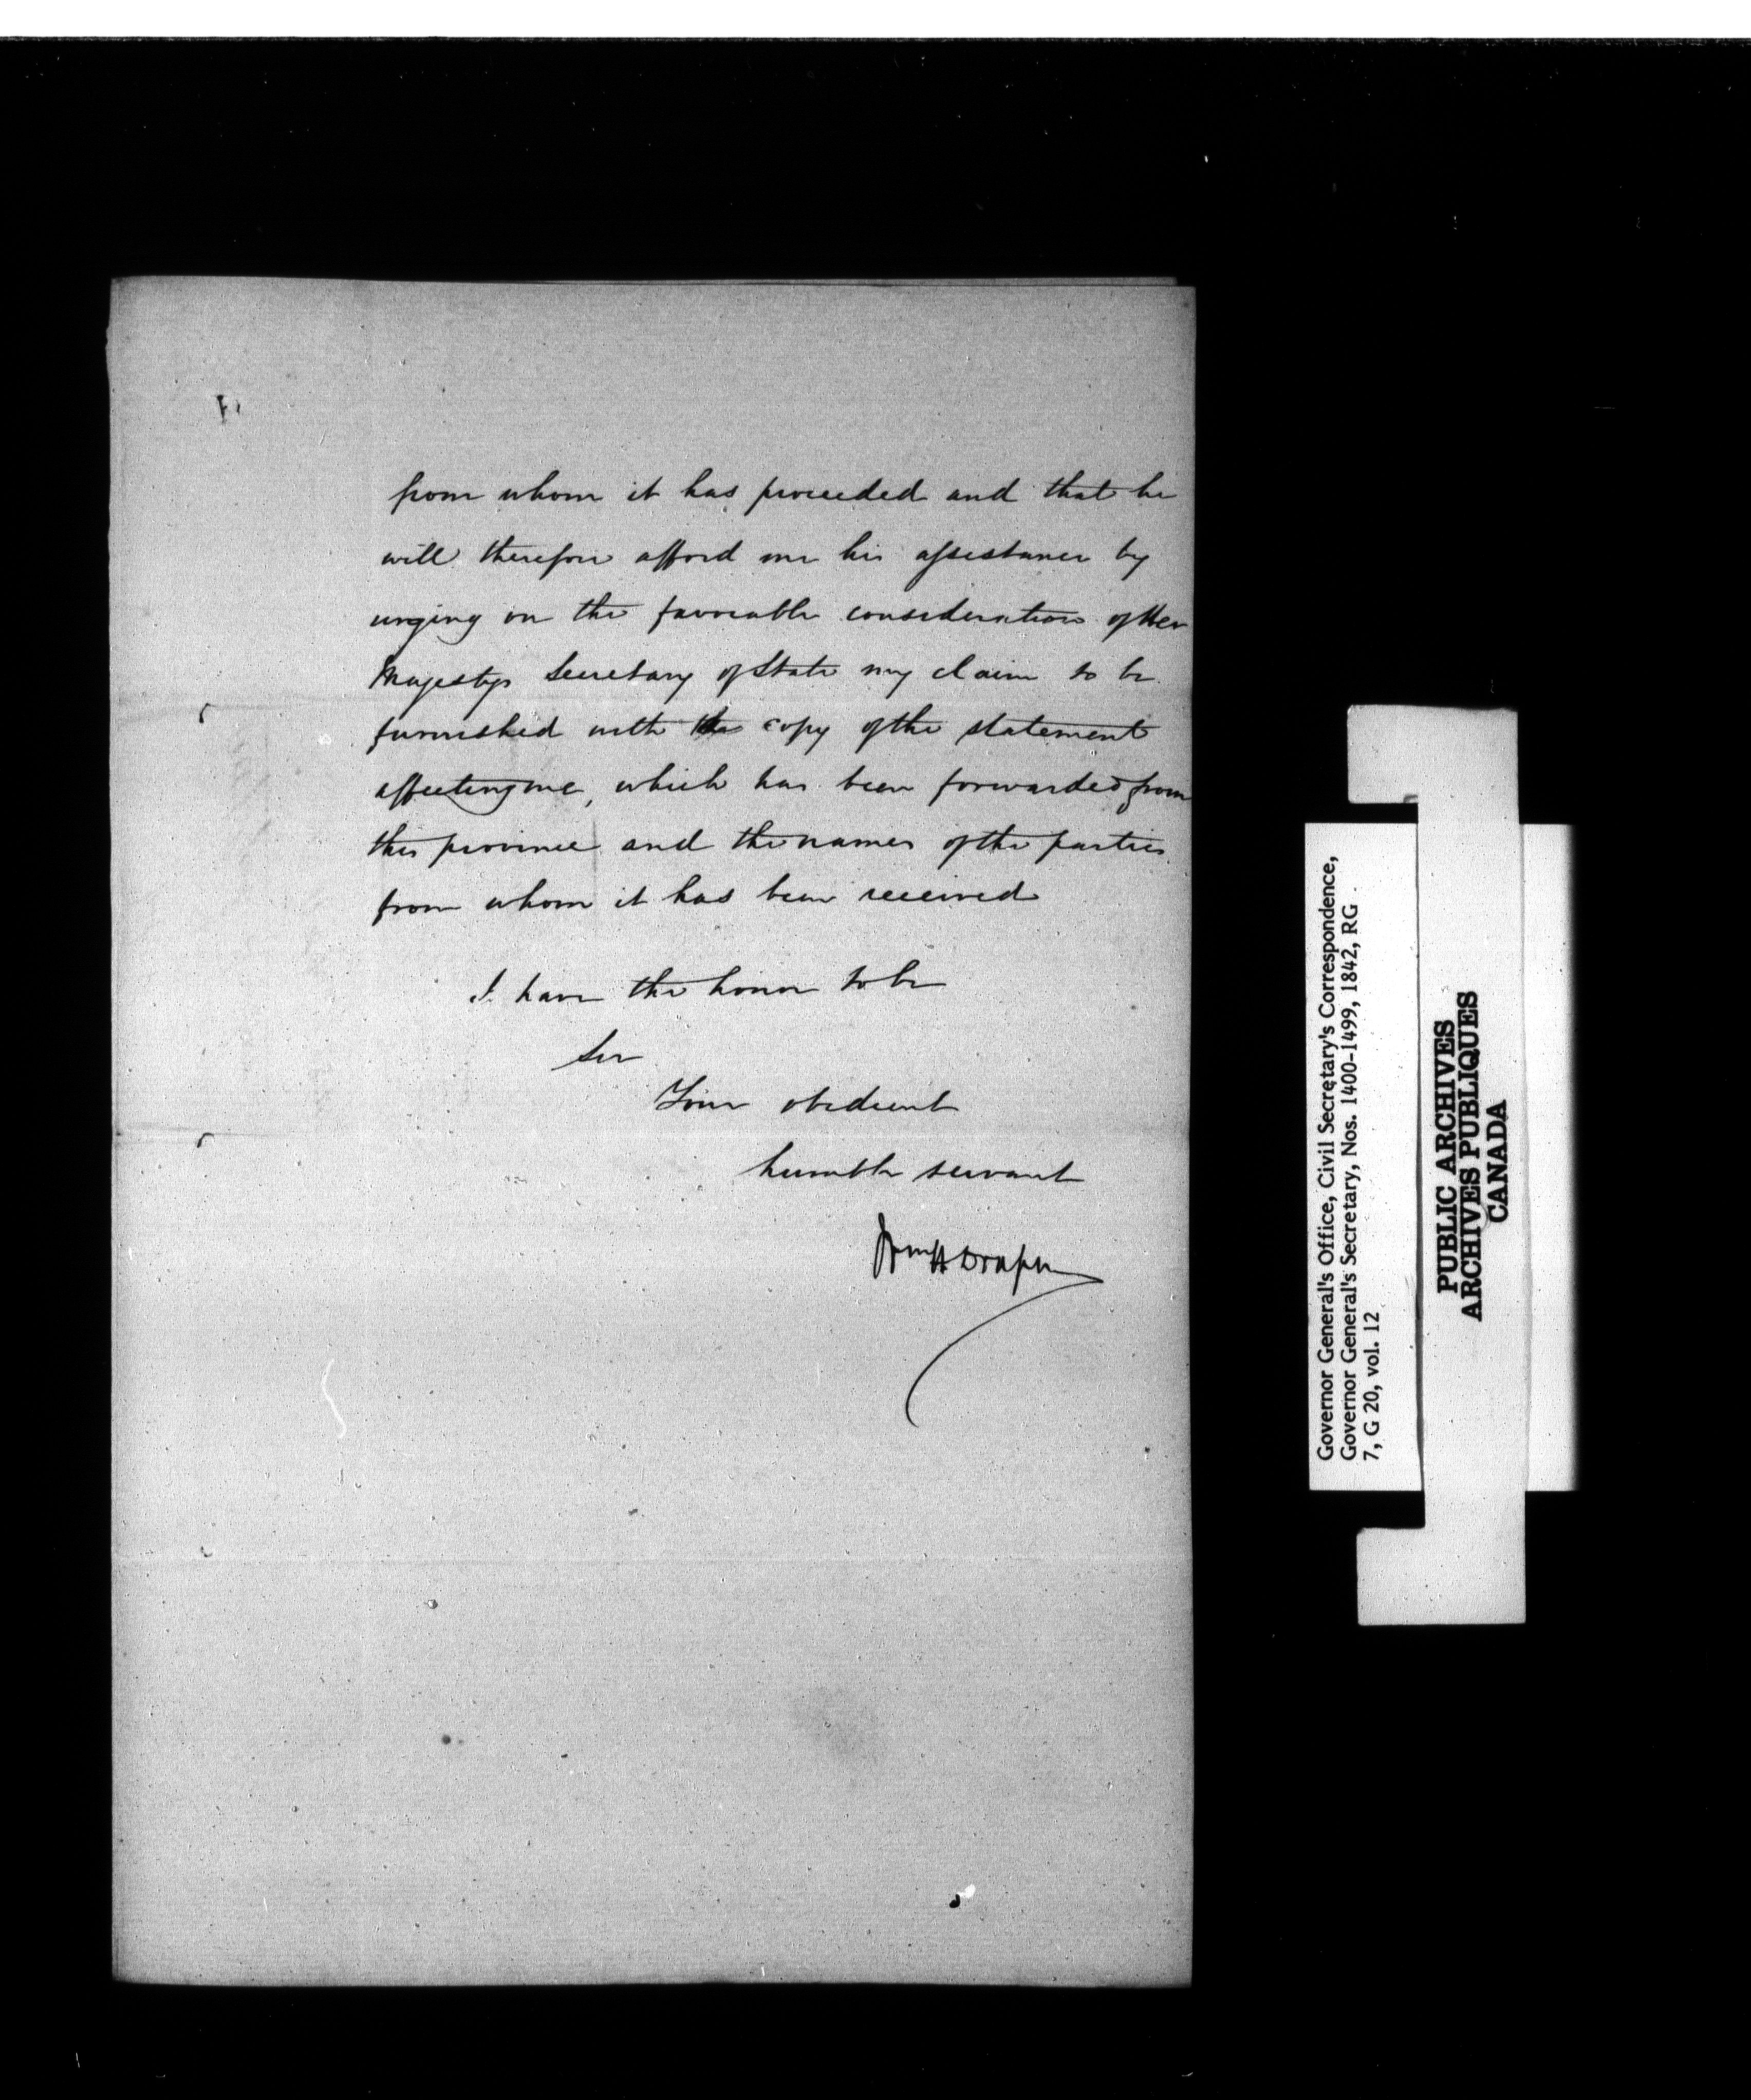 from whom it has proceeded and that he
will therefore afford me his assistance by
urging on the favorable consideration of Her
Majestys Secretary of State my claim to be
furnished with copy of the statement
affecting me, which has been forwarded from
this province and the names of the parties
from whom it has been received
I have the honor to be
Sir
Your obedient
humble servant
Wm H Draper
Governor General's Office, Civil Secretary's Correspondence,
Governor General's Secretary, Nos. 1400-1499, 1842, RG
7, G 20, vol. 12
PUBLIC ARCHIVES
ARCHIVES PUBLIQUES
CANADA